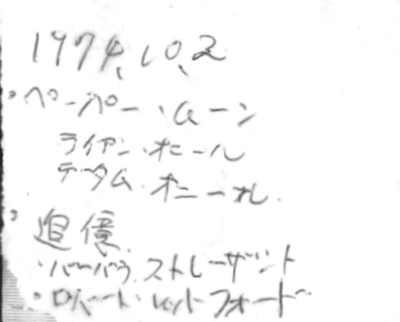 1974.10.2
・ペーパー・ムーン
ライアン・オニール
テータム・オニール
・追億
・バーバラ ストレーザント
・ロバート・レッドフォード